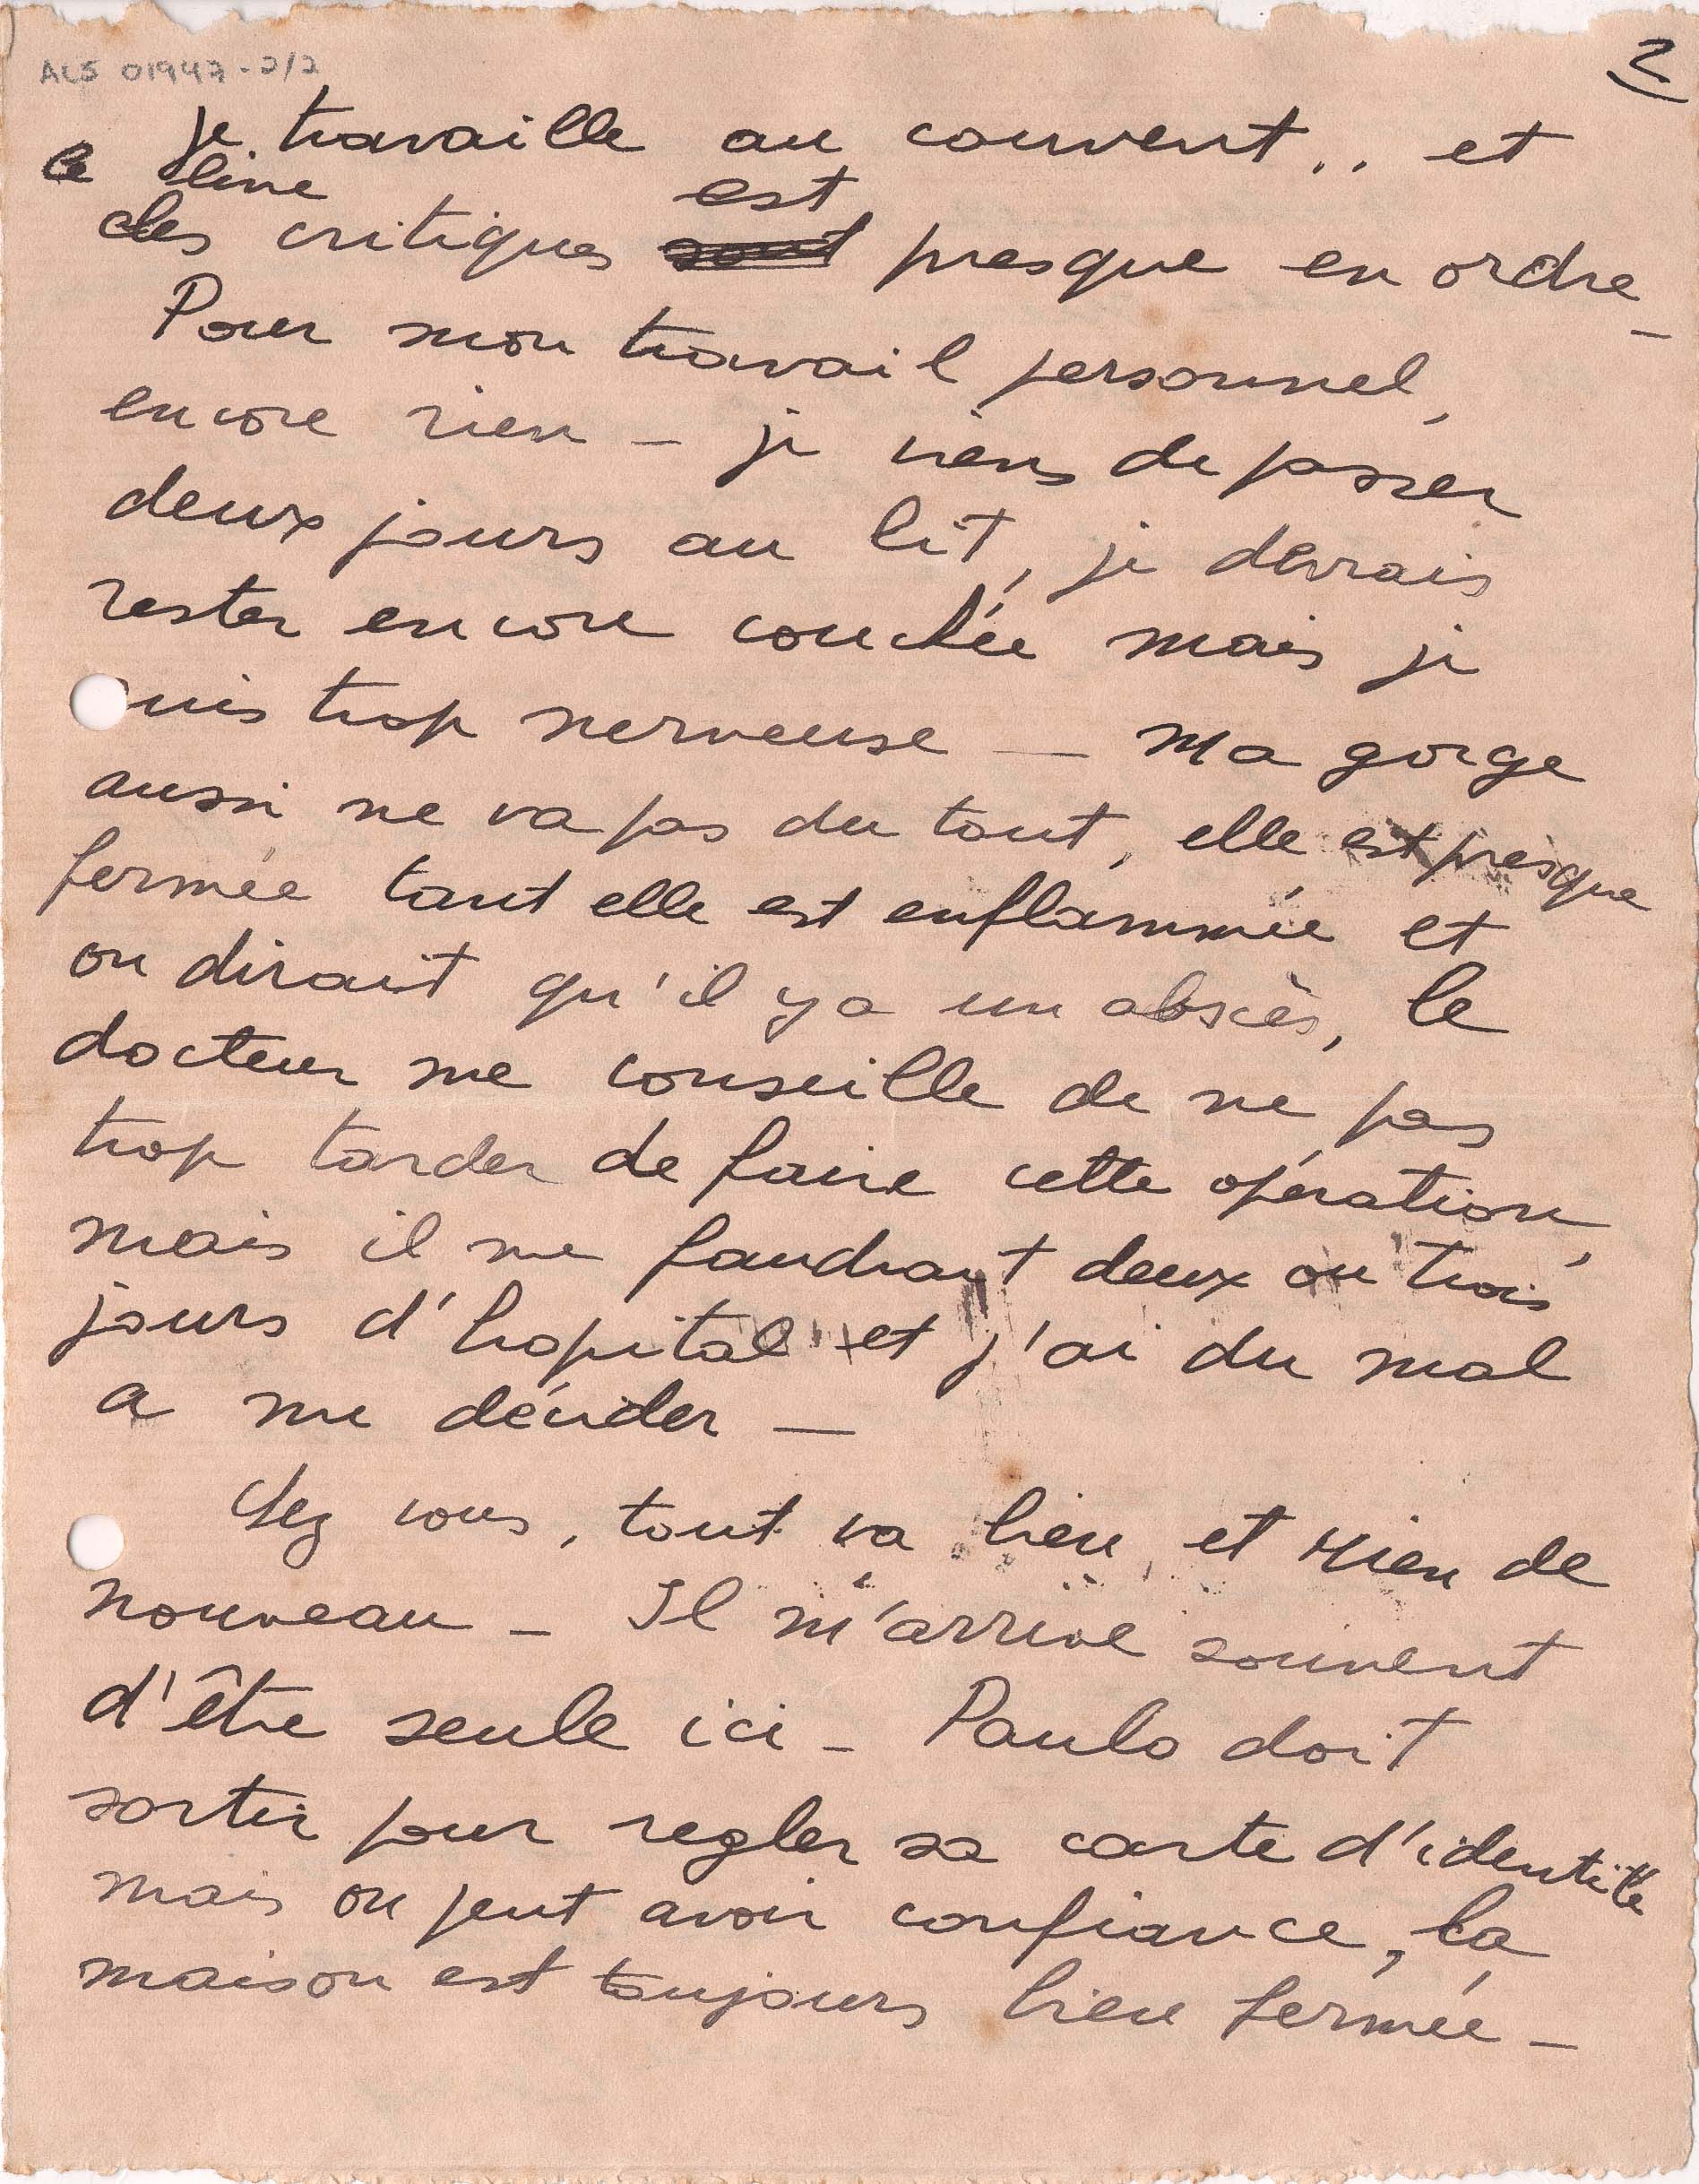 ALS 01947-2/2
2
je travaille au couvent.. et
le livre est
des critiques sont presque en ordre_
Pour mon travail personnel,
encore rien _ je viens de passer
deux jours au lit, je devrais
rester encore couchée mais je
suis trop nerveuse _ Ma gorge
aussi ne va pas du tout, elle est presque
fermée tant elle est enflammée et
on dirait qu'il y a un abscès, le
docteur me conseille de ne pas
trop tarder de faire cette opération,
mais il me faudrait deux ou trois
jours d'hopital et j'ai du mal
a me décider _
Chez vous, tout va bien et rien de
nouveau _ Il m'arrive souvent
d'être seule ici _ Paulo doit
sortir pour regler sa carte d'identité
mais on peut avoir confiance, la
maison est toujours bien fermée _